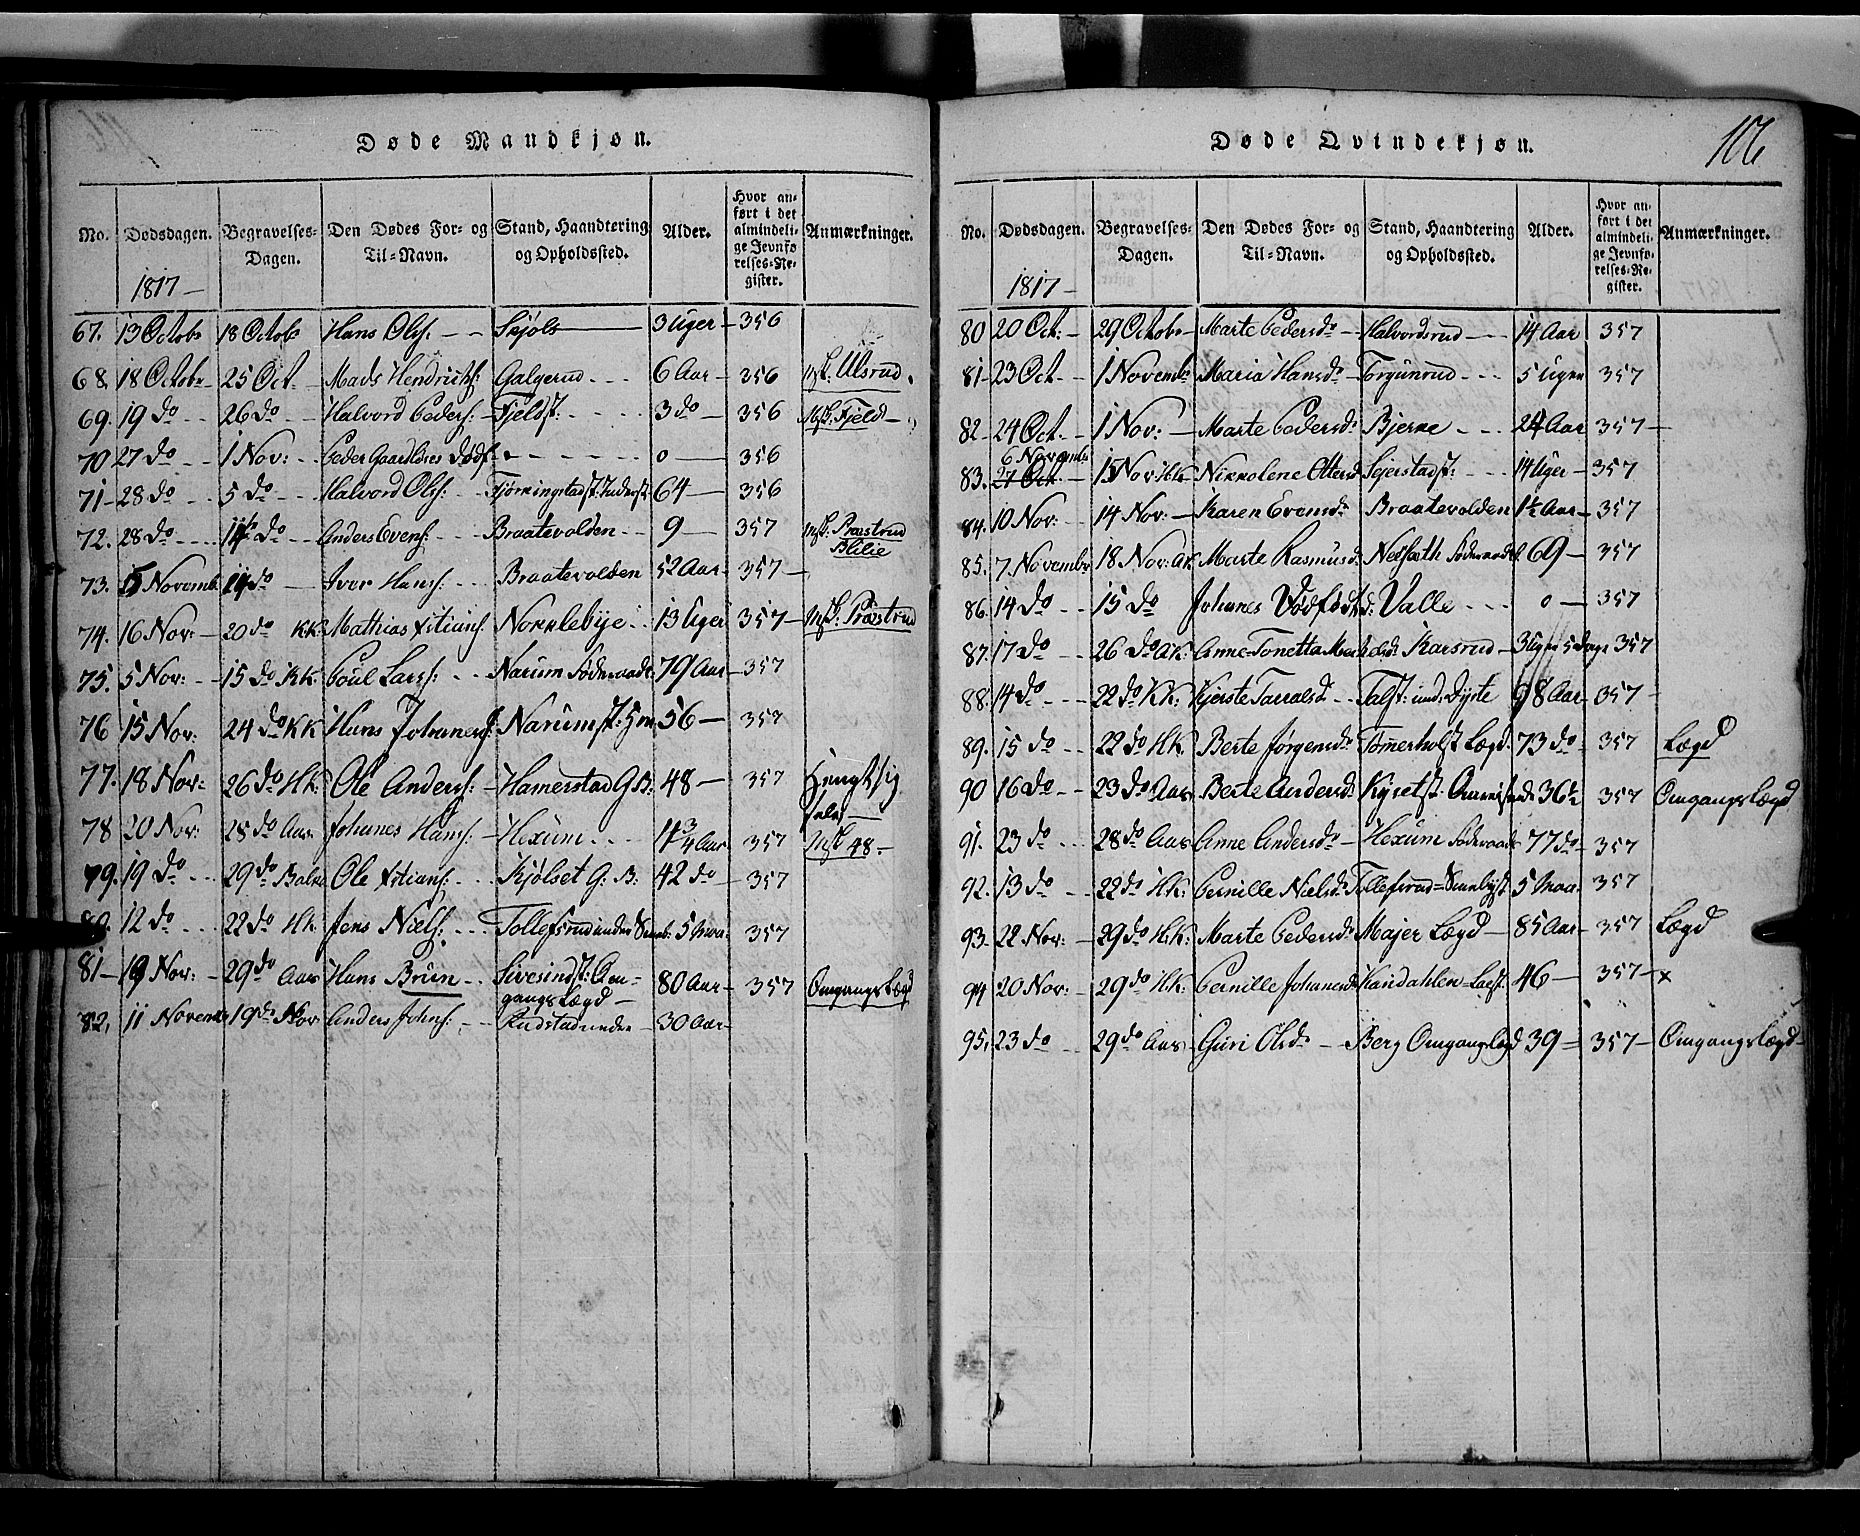 Døde Mandkjøn.
No. Dødsdagen. Begravelses-Dagen. Den Dødes For- og Til-Navn. Stand, Haandtering og Opholdssted. Alder. Hvor anført i det almindelige Jevnførelses-Register. Anmærkninger.
1817 —
67. 13 Octobr 18 Octobr Hans Olss: — — Skjöls — 3 Uger — 356
68. 18 Octobr 25 Oct. — Mads Hendrichs: Galgerud — — 6 Aar — 356 Ulsrud.
69. 19 do — 26 do — Halvord Peders: — Fjeldst: — — 3 do — 356 Fjeld —
70 27 do — 1 Nov: — Peder Gaardløses Dødf. — — 0 — 356
71 — 28 do — 5 do — Halvord Ols: — 64 — 356
72. 28 do — do — Anders Evens: — Braatevolden — 9 — 357 Præstrud Blilie
73. 5 Novemb. do — Iver Hans: — Braatevolden 52 Aar — 357 —
74. 16 Nov: — 20 do KK: Mathias Xtians: Nokklebÿe — 13 Uger 357 — Præstrud
75. 5 Nov: — 15 do KK. Poul Lars: — Narum Söderaadt 79 Aar — 357
76 15 Nov: 24 do KK Hans Johanes: Narumst: 56 — 357
77. 18 Nov: 26 do HK: Ole Anders: — Hamerstad G.B: 48 — 357 Hengt sig
78 20 Nov: 28 do Aas Johanes Hans: — Hexum — 4 3/4 Aar 357 48 —
79. 19 do — 29 do Balke Ole Xtians: — Kjölset G: B: 42 do — 357
80. 12 do — 22 do HK. Jens Niels: — Tollefsrud under 5 Maa: 357
81 — 19 Nov: — 29 do Aas Hans Brun — Sivesindst: Om=gangs Lægd — 80 Aar — 357 Omgangs Lægd
82. 11 Novembr 19de Nov Anders Johns: — Rudstad under — 30 Aar —
Døde Qvindekjøn.
106
No. Dødsdagen. Begravelses-Dagen. Den Dødes For- og Til-Navn. Stand, Haandtering og Opholdssted. Alder. Hvor anført i det almindelige Jevnførelses-Register. Anmærkninger.
1817 —
80 20 Oct. — 29 Octobr — Marte Pedersdr — Halvordsrud — 14 Aar 357
81 — 23 Oct — 1 Novembr Maria Hansdr Torgunrud — 5 Uger 357
82 — 24 Oct. — 1 Nov: — Marte Pedersdr Bjerne — 24 Aar 357 —
6 Novembr
83. 27 Oct. — 15 Nov: Nikkolene Ottersd Sejerstadst: — 14 Uger — 357
84. 10 Nov: 14 Nov: — Karen Evensdr Braatevolden 1½ Aar — 357
85. 7. Novembr 18 Nov: AK Marte Rasmusd: Söderaadt 69 — 357
86. 14 do — 15 do Johanes Dödfødt d: Valle — 0 — 357
87. 17 do — 26 do AK: Anne Tonetta Karsrud — 3 Uger 5 dage 357
88. 14 do — 22 do KK: Kjerste Tarralsd — Talst: und: Dyste 98 Aar 357 —
89. 15 do — 22 do HK. Berte Jörgensdr Tömerholst Lægd. 73 do — 357 Lægd
90 16 do — 23 do Aas Berte Andersdr Kysetst. 36½ 357 Omgangs Lægd
91. 23 do — 28 do Aas Anne Andersdr — Hexum Söderaadt 77 do — 357
92. 13 do — 22 do HK: Pernille Nielsdr Tollefsrud = 5 Maa: 357
93. 22 Nov: — 29 do HK: Marte Pedersdr Majer Lægd — 85 Aar — 357 Lægd
94 20 Nov: — 29 do HK: Pernille Johanesdr Kandahlen 46 — 357 — x
95. 23 do — 29 do Aas Guri Olsdr — Berg Omgangslægd 39 = 357 — Omgangs Lægd —